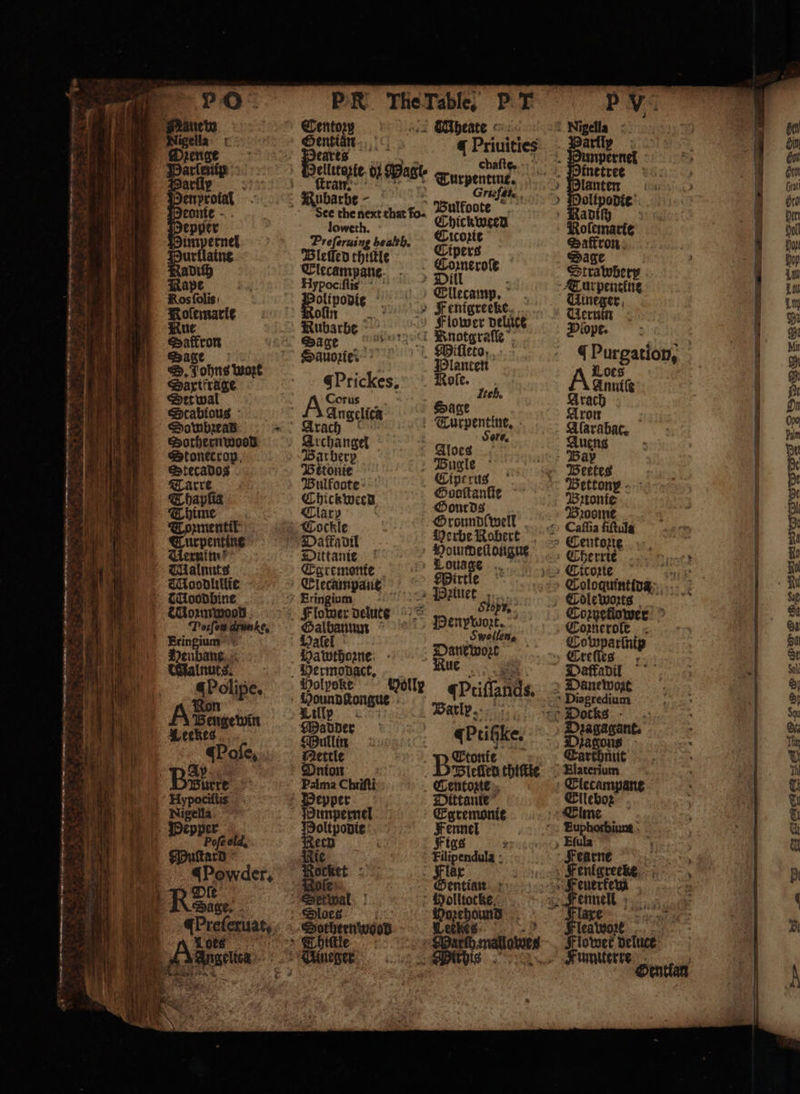 PO
PR The Table, PT
PV.
Nauew
Nigella
Orenge
Parsenip
Parsly
Penyroial
Peonie
Pepper
Pimpernel
Purslaine
Radish
Rape
Ros solis
Rosemarie
Rue
Saffron
Sage
S. Johns wort
Saxifrage
Setwal
Scabious
Sowbread
Sothernwood
Stonecrop
Stecados
Tarre
Thapsia
Thime
Tormentil
Turpentine
Veruain
Walnuts
Woodlillie
Woodbine
Wormwood
Poison drunke,
Eringium
Henbane
Walnuts.
¶ Polipe.
Ron
A Bengewin
Leekes
¶ Pose,
Ay
Burre
Hypocistis
Nigella
Pepper
Pose old,
Mustard
¶ Powder,
Ole
R Sage.
¶ Preseruat,
Loes
A Angelica
Centory
Gentian
Peares
Pellitorie or Magi-
stran.
Rubarbe
See the next that fo-
loweth.
Preseruing health.
Blessed thistle
Elecampane
Hypocistis
Polipodie
Rosin
Rubarbe
Sage
Sauorie.
¶ Prickes,
A Corus
Angelica
Arach
Archangel
Barbery
Betonie
Bulfoote
Chickweed
Clary
Cockle
Daffadil
Dittanie
Egremonte
Elecampane
Eringium
Flower deluce
Galbanum
Hasel
Hawthorne
Hermodact,
Holyoke Holly
Houndstongue
Lilly
Madder
Mullin
Nettle
Onion
Palma Christi
Pepper
Pimpernel
Polipodie
Reed
Rie
Rocket
Rose
Setwal
Sloes
Sothernwood
Thistle
Vineger
Wheate
¶ Priuities
chaste.
Turpentine.
Griefes.
Bulfoote
Chickweed
Cicorie
Cipers
Cornerose
Dill
Ellecamp.
Fenigreeke
Flower deluce
Knotgrasse
Misleto,
Planten
Rose.
Itch.
Sage
Turpentine,
Sore,
Aloes
Bugle
Ciperus
Goostansie
Gourds
Groundswell
Herbe Robert
Houndestongue
Louage
Mirtle
Priuet
Stopt,
Penywort.
Swellen,
Danewort
Rue
¶ Ptissands.
Barly.
¶ Ptisike.
Etonie
B Blessed thistle
Centorie
Dittanie
Egremonie
Fennel
Figs
Filipendula
Flax
Gentian
Holliocke,
Horehound
Leekes
Marsh mallowes
Mirhis
Nigella
Parsly
Pimpernel
Pinetree
Planten
Polipodie
Radish
Rosemarie
Saffron
Sage
Strawbery
Turpentine
Vineger
Veruin
Ysope.
¶ Purgation,
Loes
A Annise
Arach
Aron
Alarabac.
Auens
Bay
Beetes
Bettony
Brionie
Broome
Cassia fistula
Centorie
Cherrie
Cicorie
Coloquintida
Coleworts
Corneflower
Cornerose
Cowparsnip
Cresses
Daffadil
Danewort
Diagredium
Docks
Dragagant.
Dragons
Earthnut
Elaterium
Elecampane
Ellebor
Elme
Euphorbium
Esula
Fearne
Fenigreeke
Feuerfew
Fennell
Flaxe
Fleawort
Flower deluce
Fumiterre
Gentian